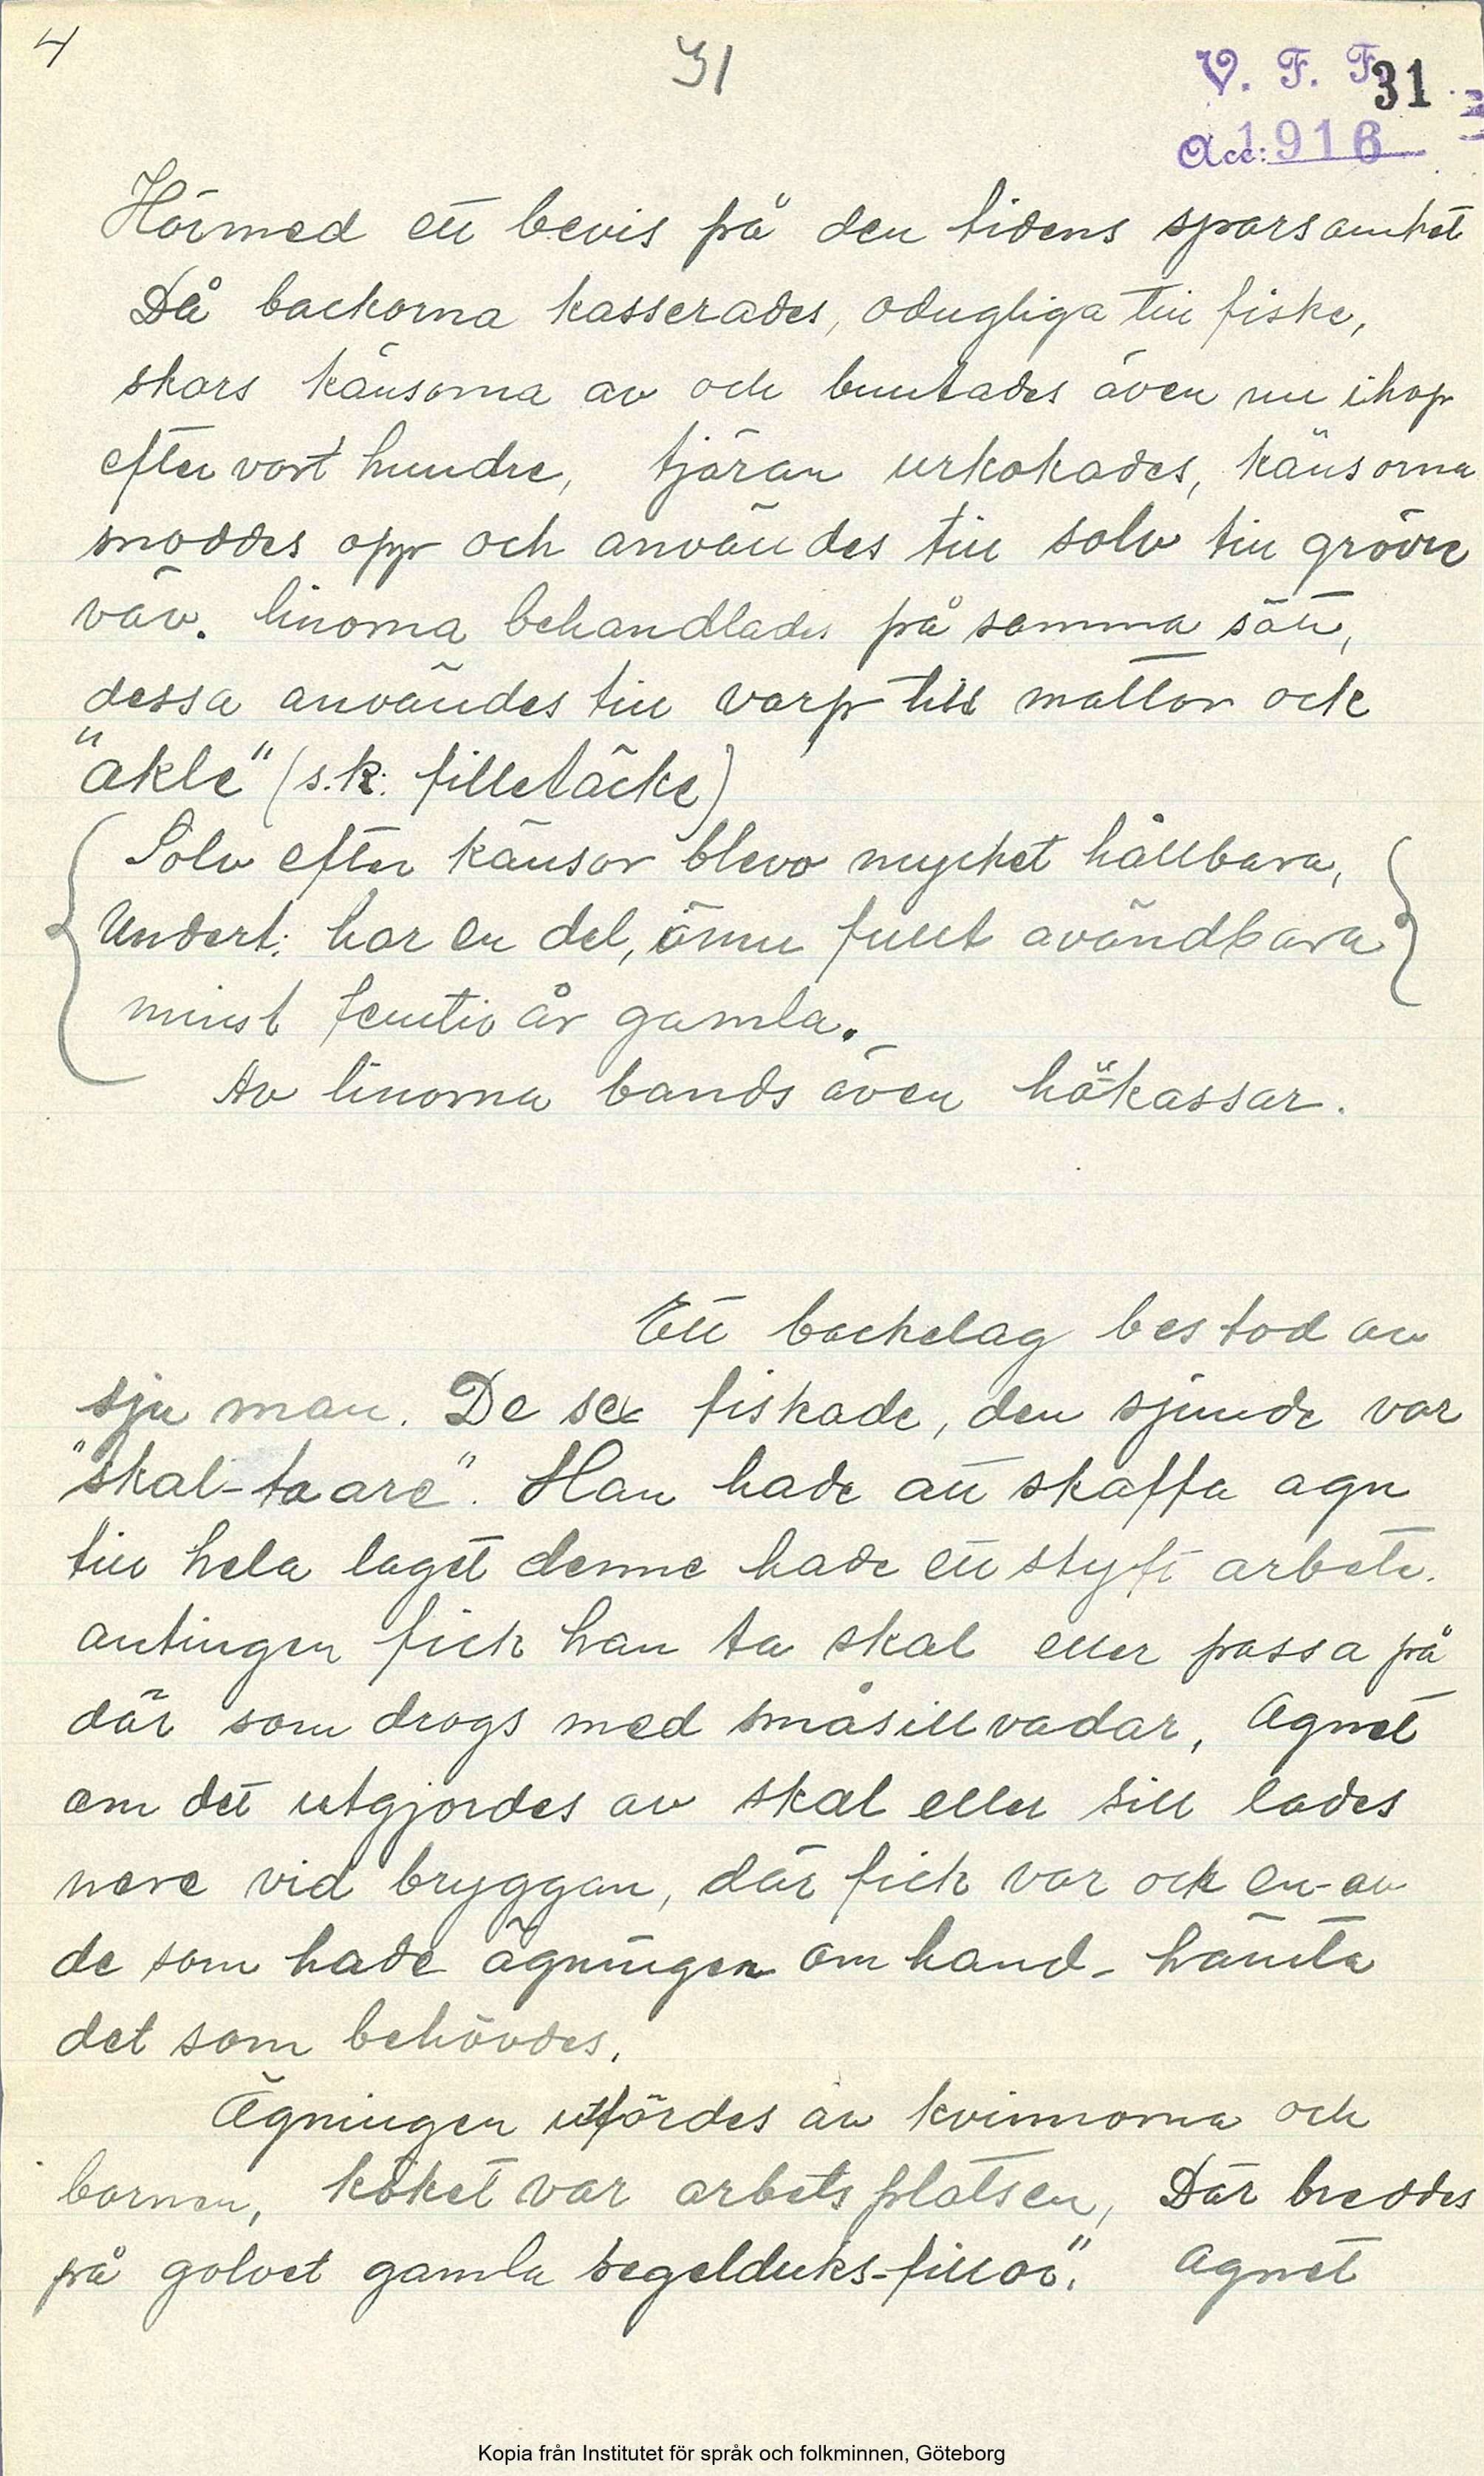 4
31
V. F. F.
31
Acc: 1916
Härmed ett bevis på den tidens sparsamhet
Då backorna kasserades, odugliga till fiske,
skars käusorna av och buntades även nu ihop
efter vart hundre, tjäran urkokades, käusorna
snoddes opp och användes till solv till grövre
väv. linorna behandlades på samma sätt,
dessa användes till varp till mattor och
"åkle" (s.k. filletäcke)
Solv efter käusor blevo mycket hållbara,
Undert: har en del, ännu fullt avändbara
minst femtio år gamla.
Av linorna bands även hökassar.
Ett backelag bestod av
sju man. De sex fiskade, den sjunde var
"skal-taare". Han hade att skaffa agn
till hela laget denne hade ett styft arbete.
antingen fick han ta skal eller passa på
där som drogs med småsillvadar, Agnet
om det utgjordes av skal eller sill lades
nere vid bryggan, där fick var och en - av
de som hade ägningen om hand - hämta
det som behövdes.
Ägningen utfördes av kvinnorna och
barnen, köket var arbetsplatsen, Där breddes
på golvet gamla segelduks-fillor". Agnet
Kopia från Institutet för språk och folkminnen, Göteborg